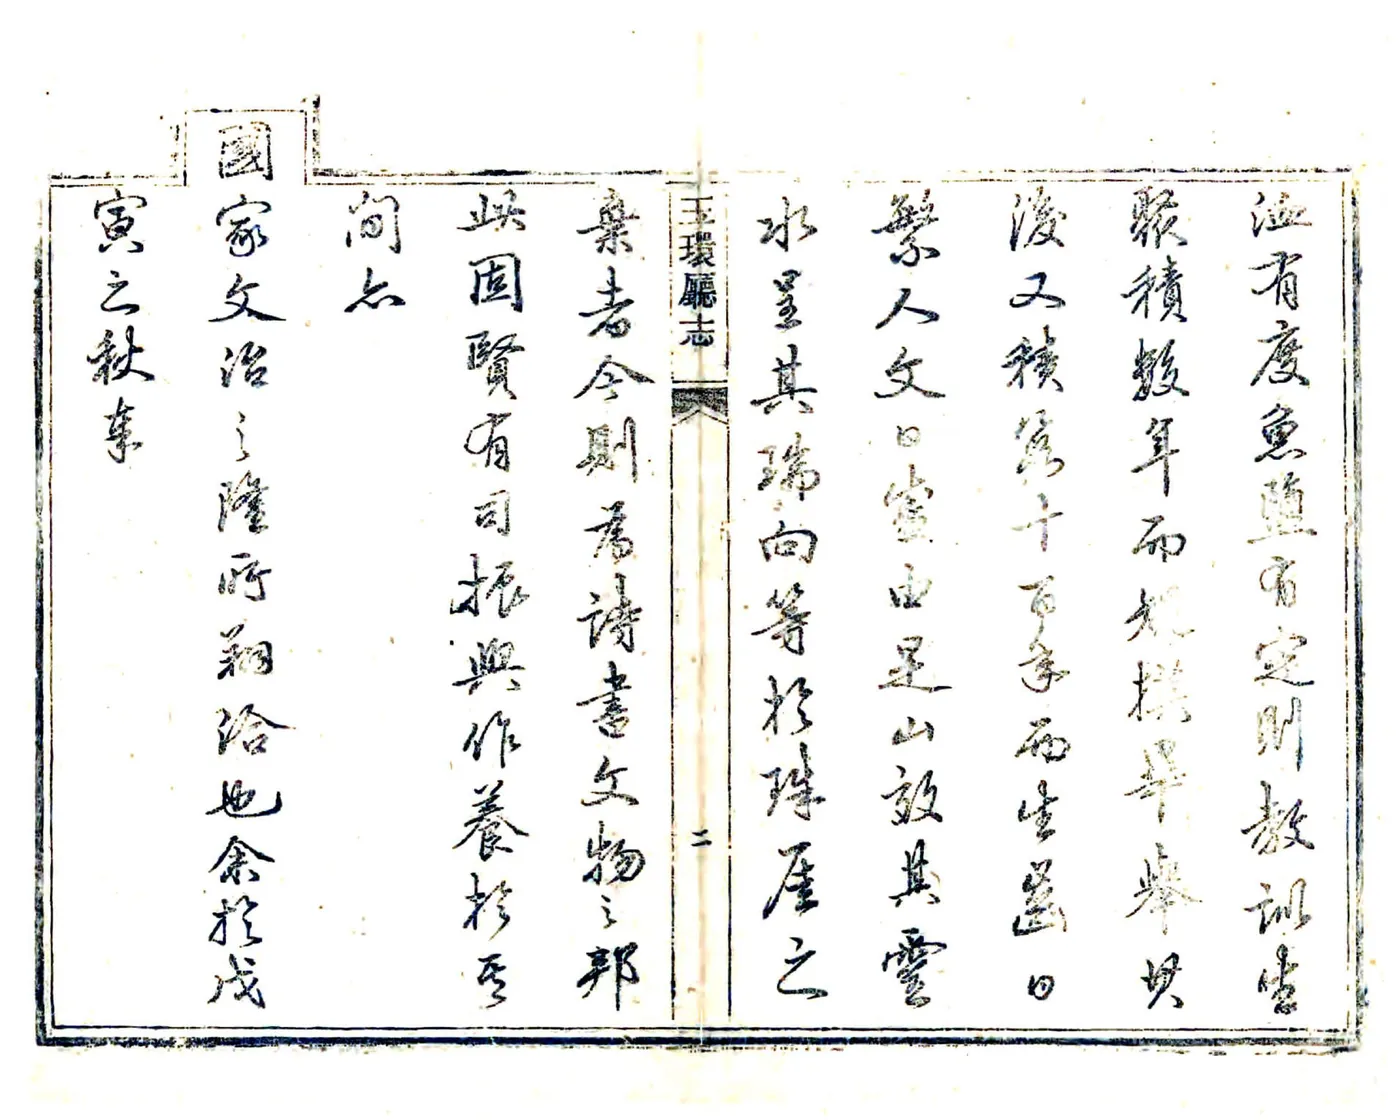 洫有度魚鹽有定則教訓生
聚積數年而規撫畢舉其
後又積營十百年而生齒日
繁人文日盛由是山效其靈
水呈其瑞向等於珠厓之
玉環廳志
二
棄者今則為詩書文物之邦
此固賢有司振興作養於其
間亦
國家文治之隆所翔洽也余於戊
寅之秋奉